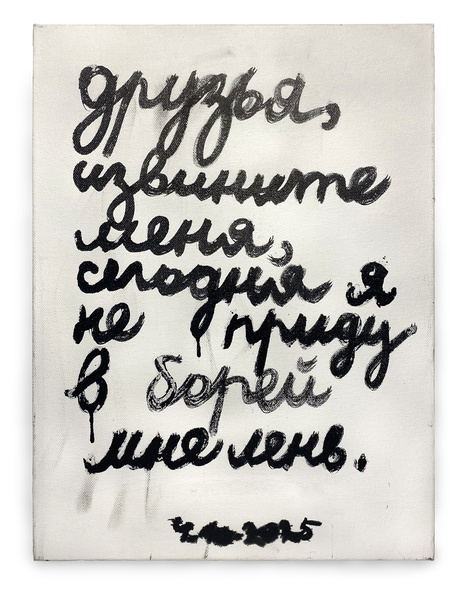 друзья,
извините
меня,
сегодня я
не приду
в борей
мне лень.